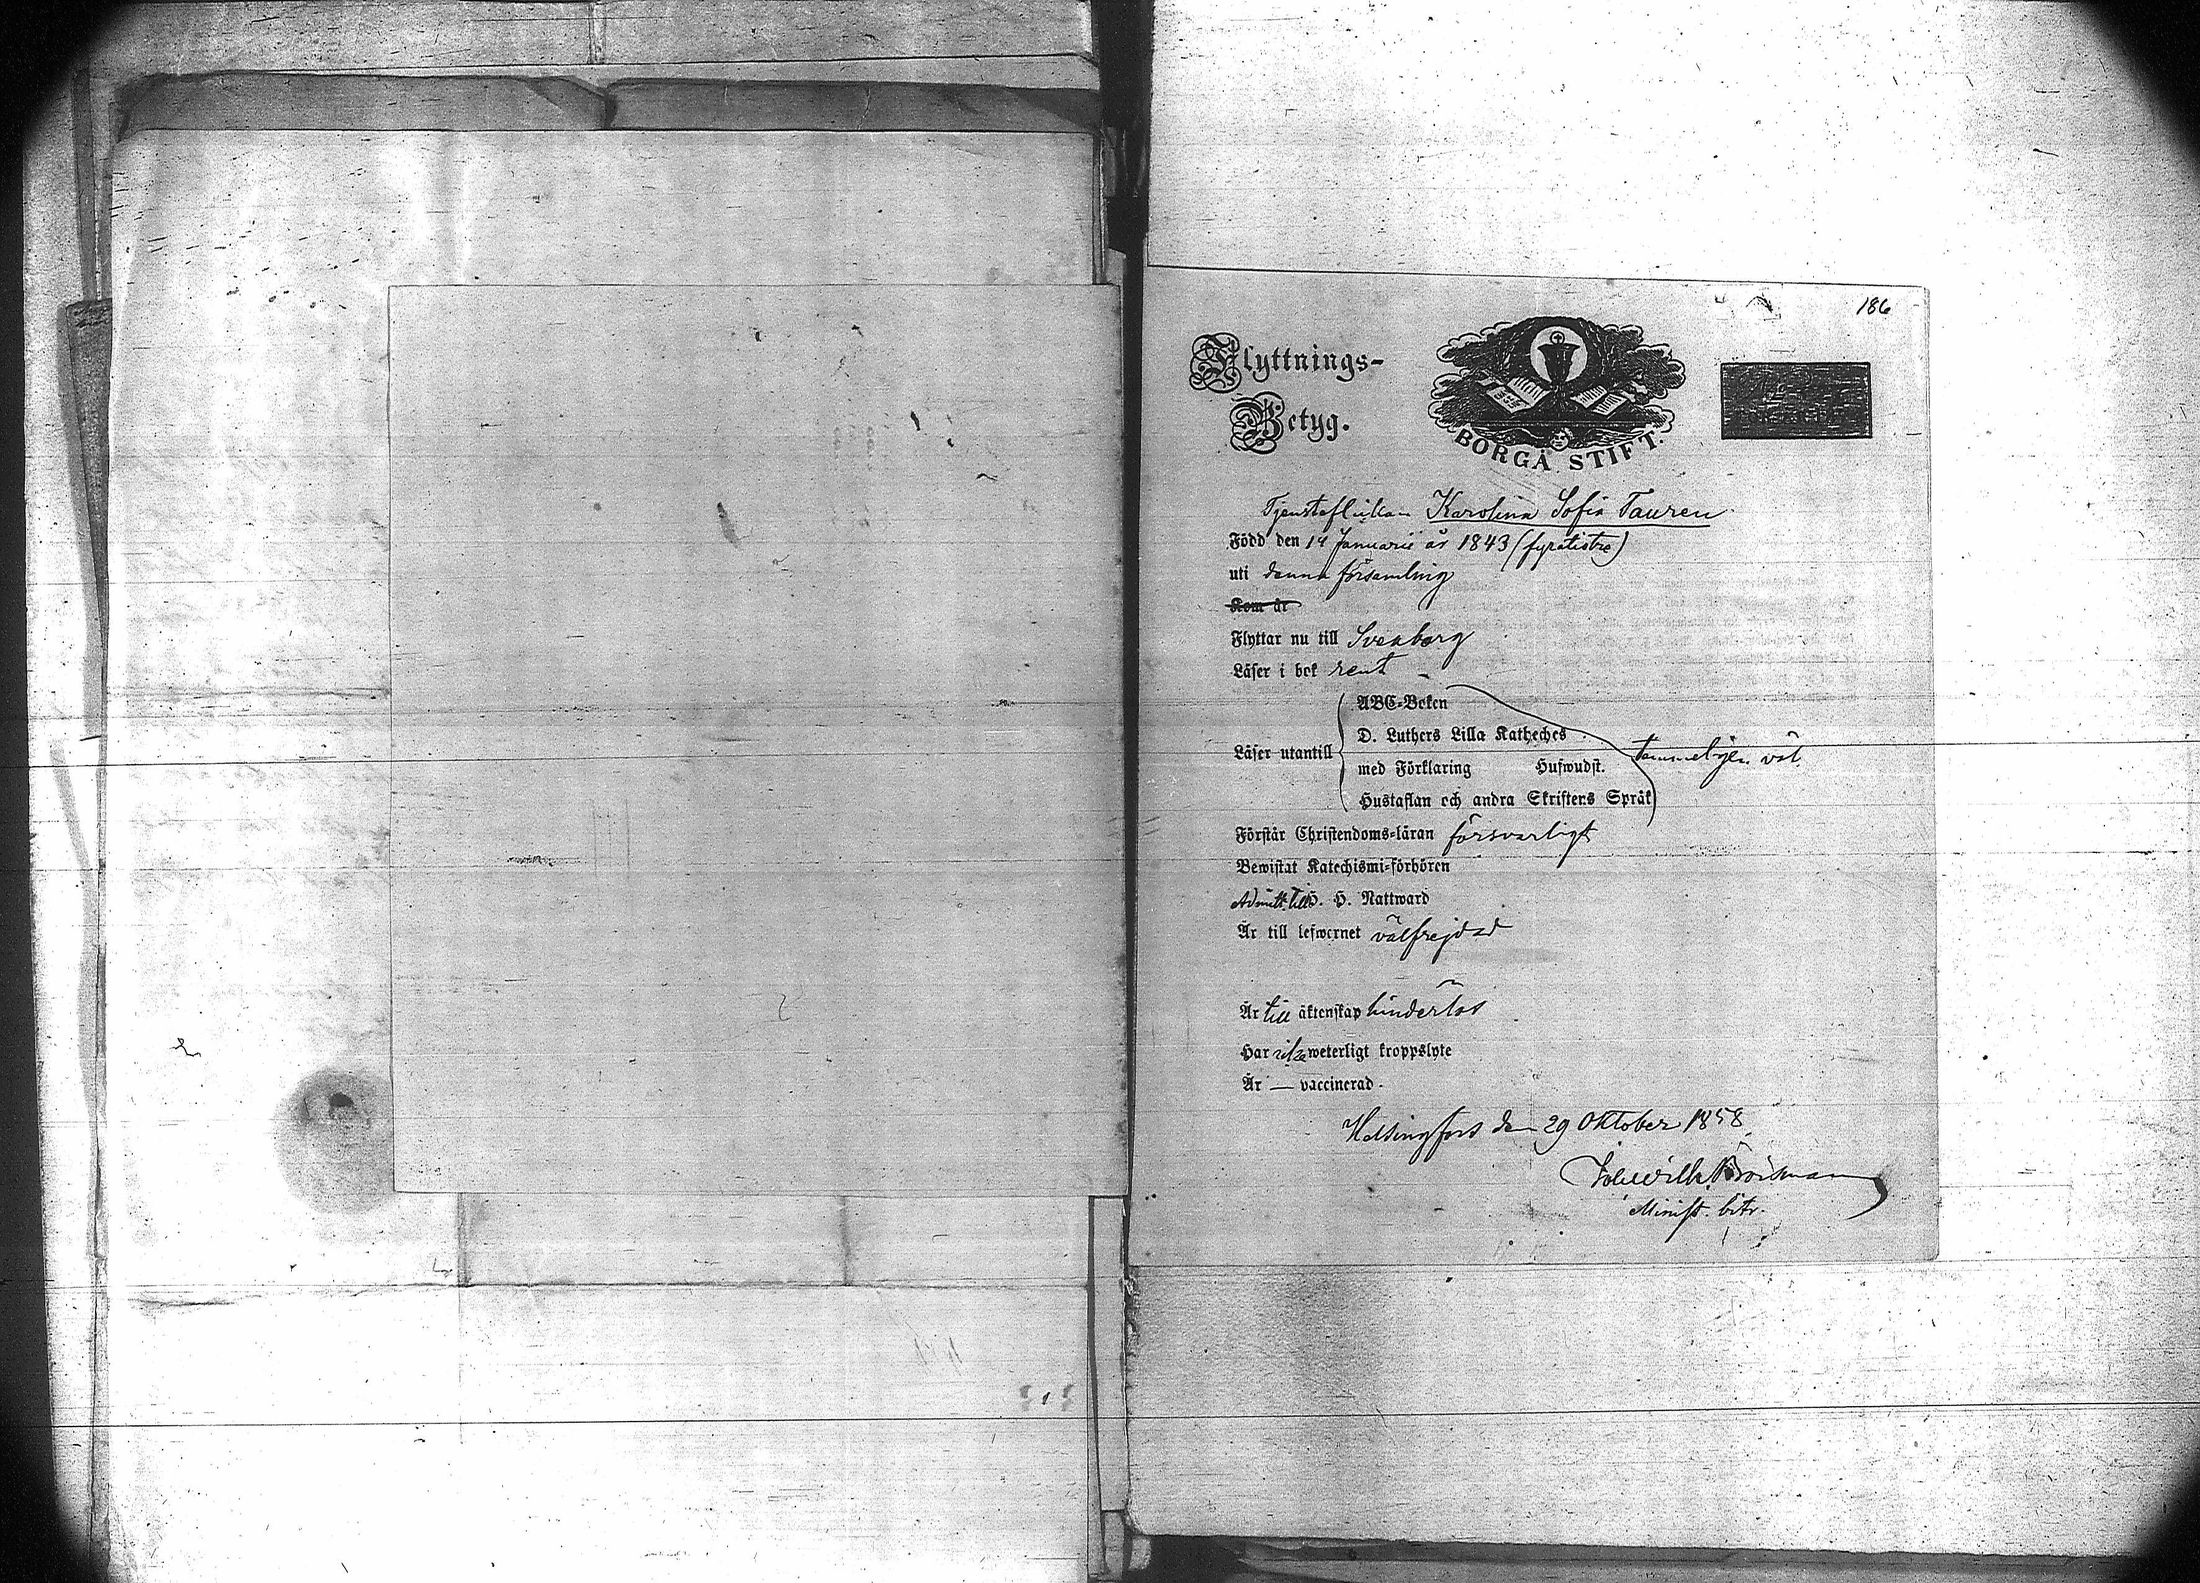 186
Flyttnings-
Betyg.
BORGÅ STIFT.
Tjensteflickan Karolina Sofia Tauren
Född den 14 Januarii år 1843 (fyratiotre)
uti denna församling
Kom år
Flyttar nu till Sveaborg
Läser i bok rent
Läser utantill
ABC-Boken
D. Luthers Lilla Katheches
med Förklaring Hufwudst.
Hustaflan och andra Skriftens Språk
tämmeligen väl.
Förstår Christendoms-läran försvarligt
Bewistat Katechismi-förhören
Admitt. till H. H. Nattward
Är till lefwernet välfrejdad
Är till äktenskap hinderlös
Har icke weterligt kroppslyte
Är — vaccinerad.
Helsingfors den 29 Oktober 1858
Minist. bitr.